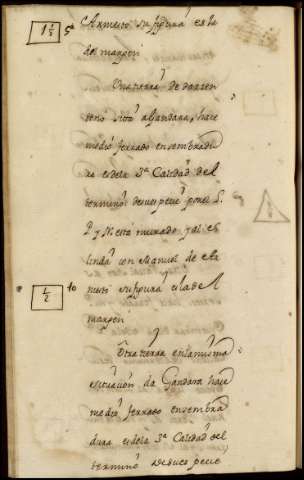 1 1/2 5ª Armesto su figura es la
del margen
Una tierra de darren
teno sita a Gandara, hace
medio ferrado en sembradu
ra es dela 3ª Calidad del
termino: desuespecie por el L.
P. y N. está murado y al es
linda con Manuel de Ar
1/2 10 mesto su figura es la del
margen
Otra tierra en la misma
situacion da Gandara hace
medio ferrado en sembra
dura es dela 3ª Calidad del
termino desuespecie